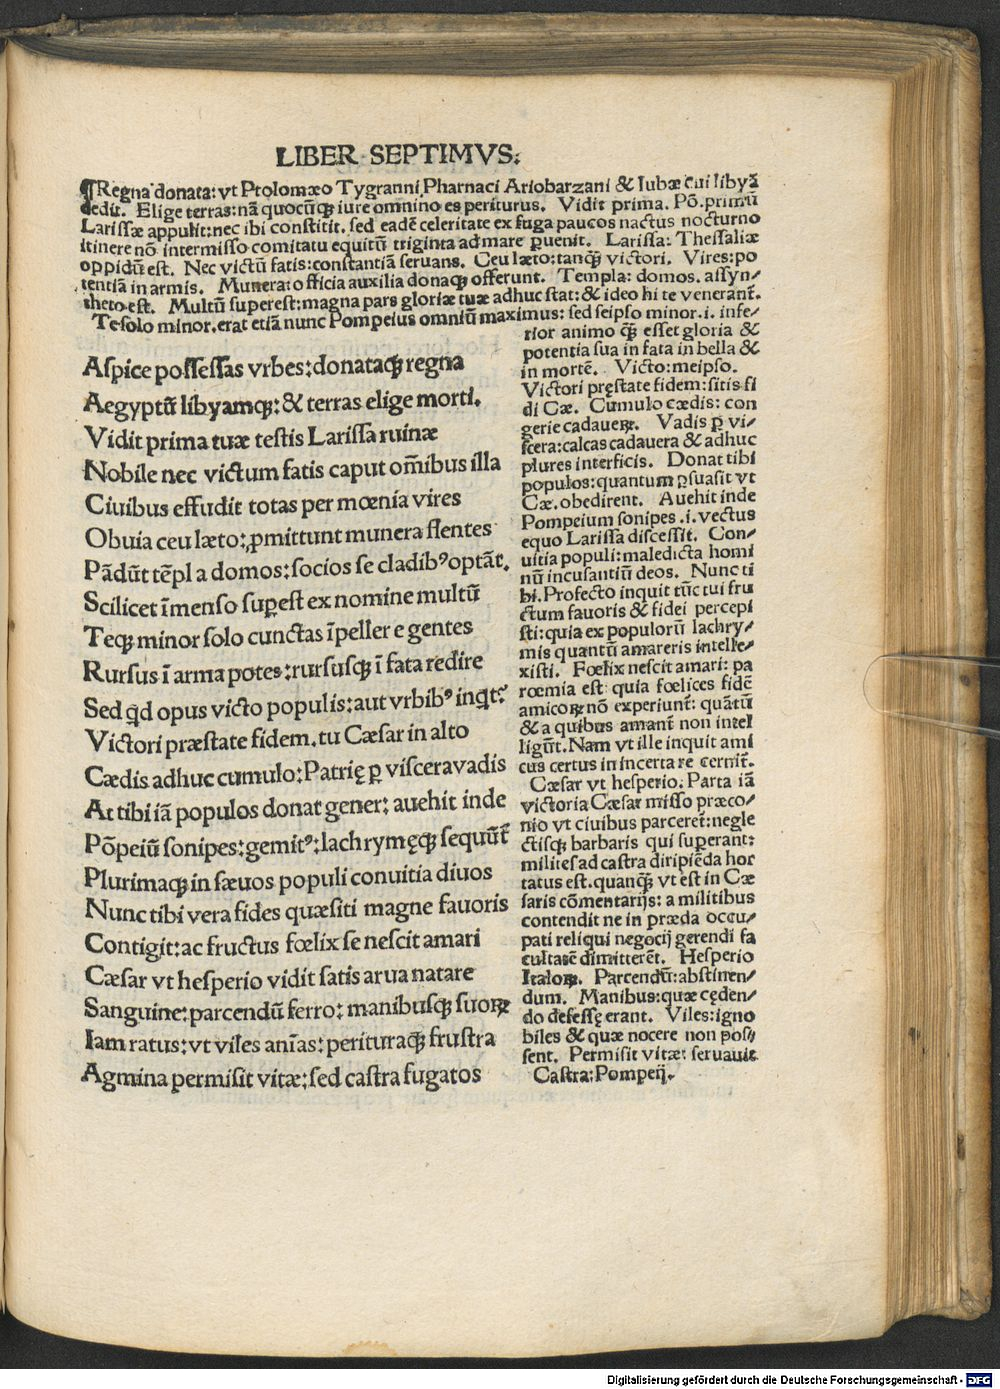 LIBER SEPTIMVS.
¶Regna donata: vt Ptolomæo Tygranni Pharnaci Ariobarzani & Iubæ cui libyā
dedit. Elige terras: nā quocūqꝫ iure omnino es periturus. Vidit prima. Pō. primū
Larissæ appulit: nec ibi constitit. sed eadē celeritate ex fuga paucos nactus nocturno
itinere nō intermisso comitatu equitū triginta ad mare ꝑuenit. Larissa: Thessaliæ
oppidū est. Nec victū fatis: constantiā seruans. Ceu læto: tanqꝫ victori. Vires: po
tentiā in armis. Munera: officia auxilia donaqꝫ offerunt. Templa: domos. assyn/
theto est. Multū superest: magna pars gloriæ tuæ adhuc stat: & ideo hi te venerant̄.
Te solo minor. erat etiā nunc Pompeius omniū maximus: sed seipso minor .i. infe/
rior animo qꝫ esset gloria &
potentia sua in fata in bella &
in mortē. Victo: meipso.
Victori pręstate fidem: sitis fi
di Cæ. Cumulo cædis: con
gerie cadauerꝝ. Vadis ꝑ vi/
scera: calcas cadauera & adhuc
plures interficis. Donat tibi
populos: quantum ꝑsuasit vt
Cæ. obedirent. Auehit inde
Pompeium sonipes .i. vectus
equo Larissa discessit. Con/
uitia populi: maledicta homi
nū incusantiū deos. Nunc ti
bi. Profecto inquit tūc tui fru
ctum fauoris & fidei percepi
sti: quia ex populorū lachry/
mis quantū amareris intelle/
xisti. Fœlix nescit amari: pa
rœmia est quia fœlices fidē
amicorꝝ nō experiunt̄: quātū
& a quibus amant̄ non intel
ligūt. Nam vt ille inquit ami
cus certus in incerta re cernit̄.
Cæsar vt hesperio. Parta iā
victoria Cæsar misso præco/
nio vt ciuibus parceret̄: negle
ctisqꝫ barbaris qui superant:
milites ad castra diripiēda hor
tatus est. quanqꝫ vt est in Cæ
saris cōmentarijs: a militibus
contendit ne in præda occu/
pati reliqui negocij gerendi fa
cultatē dimitterēt. Hesperio
Italorꝝ. Parcendū: abstinen/
dum. Manibus: quæ cęden/
do defessę erant. Viles: igno
biles & quæ nocere non pos/
sent. Permisit vitæ: seruauit.
Castra: Pompeij.
Aspice possessas vrbes: donataqꝫ regna
Aegyptū libyamqꝫ: & terras elige morti.
Vidit prima tuæ testis Larissa ruinæ
Nobile nec victum fatis caput om̄ibus illa
Ciuibus effudit totas per mœnia vires
Obuia ceu læto: ꝓmittunt munera flentes
Pādūt tēpla domos: socios se cladibꝰ optāt.
Scilicet īmenso suꝑest ex nomine multū
Teqꝫ minor solo cunctas īpellere gentes
Rursus ī arma potes: rursusqꝫ ī fata redire
Sed qd opus victo populis: aut vrbibꝰ inqt:
Victori præstate fidem. tu Cæsar in alto
Cædis adhuc cumulo: Patrię ꝑ viscera vadis
At tibi iā populos donat gener: auehit inde
Pōpeiū sonipes: gemitꝰ: lachrymęqꝫ sequūt̄
Plurimaqꝫ in sæuos populi conuitia diuos
Nunc tibi vera fides quæsiti magne fauoris
Contigit: ac fructus fœlix se nescit amari
Cæsar vt hesperio vidit satis arua natare
Sanguine: parcendū ferro: manibusqꝫ suorꝝ
Iam ratus: vt viles aīas: perituraqꝫ frustra
Agmina permisit vitæ: sed castra fugatos
Digitalisierung gefördert durch die Deutsche Forschungsgemeinschaft - DFG